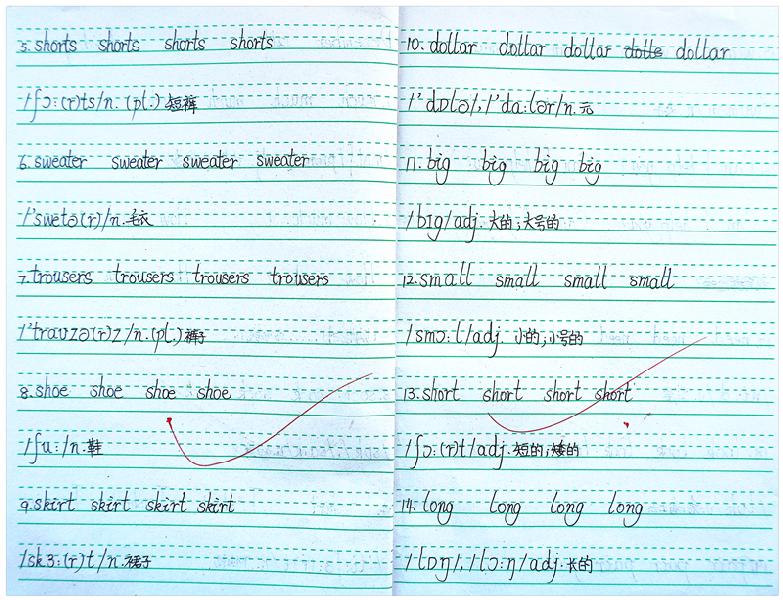 5. shorts shorts shorts shorts
/ʃɔ:(r)ts/n. (pl.) 短裤
6. sweater sweater sweater sweater
/'swetə(r)/n. 毛衣
7. trousers trousers trousers trousers
/'traʊzə(r)z/n. (pl.) 裤子
8. shoe shoe shoe shoe
/ʃu:/n. 鞋
9. skirt skirt skirt skirt
/skɜ:(r)t/n. 裙子
10. dollar dollar dollar dolle dollar
/'dɒlə/, /'da:lər/n. 元
11. big big big big
/bɪg/adj. 大的;大号的
12. small small small small
/smɔ:l/adj. 小的;小号的
13. short short short short
/ʃɔ:(r)t/adj. 短的;矮的
14. long long long long
/lɒŋ/, /lɔ:ŋ/adj. 长的